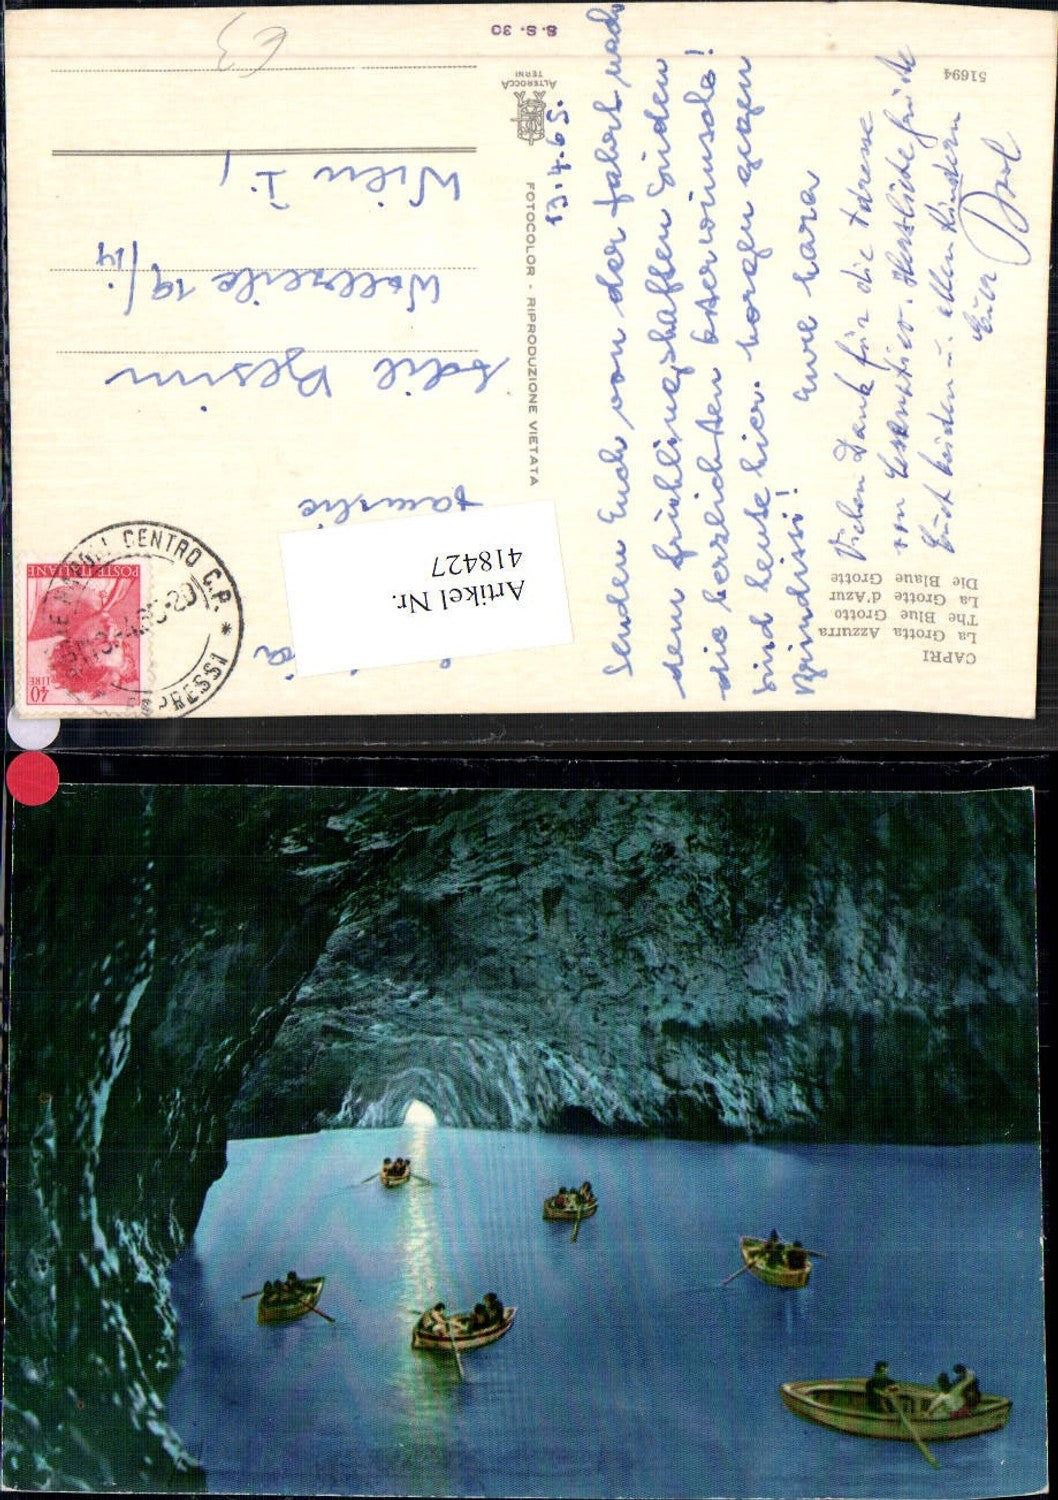 CAPRI
La Grotta Azzurra
The Blue Grotto
La Grotte d'Azur
Die Blaue Grotte
13.4.65.
Senden Euch von der Fahrt nach
dem frühlingshaften Süden
die herzlichsten Osterwünsche!
Sind heute hier. Morgen gegen
Brindissi!
Eure
Vielen Dank für die Adresse
von Herzliche Grüße
Euch beiden u. allen Kindern
Euer
51694
S.S. 30
ALTEROCCA
TERNI
FOTOCOLOR - RIPRODUZIONE VIETATA
POSTE ITALIANE
40 LIRE
NAPOLI CENTRO C.P. *
ESPRESSI
Artikel Nr.
418427
Familie
Adil Besim
Wollzeile 19/14
Wien I,
€3